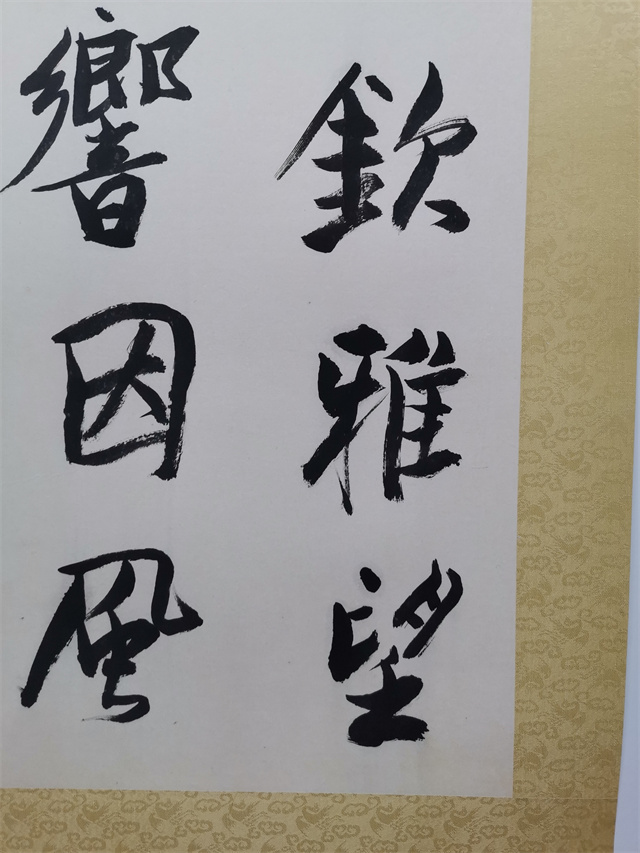 欽雅望
響因風